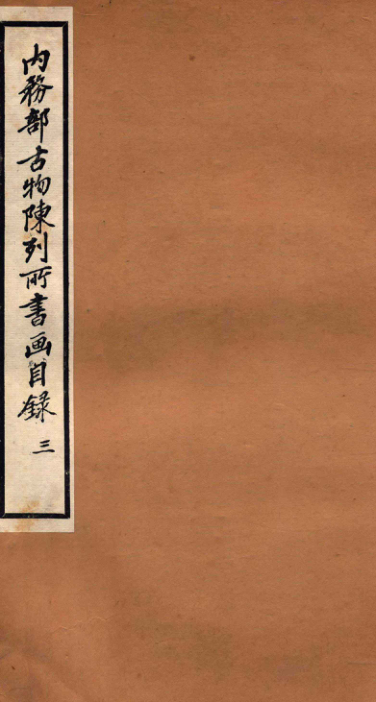 内務部古物陳列所書画目錄 三